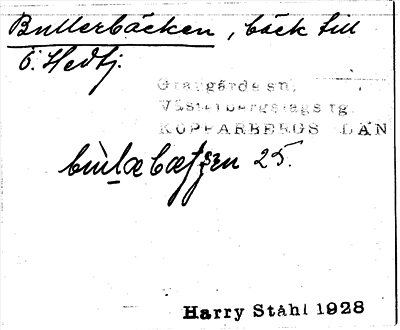 Bullerbäcken, bäck till
Ö. Hedtj.
Grangärde sn.
Västerbergslags tg.
KOPPARBERGS LÄN
25.
Harry Ståhl 1928